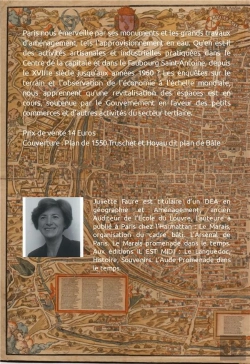 Paris nous émerveille par ses monuments et les grands travaux
d'aménagement, tels l'approvisionnement en eau. Qu'en est-il
des activités artisanales et industrielles pratiquées dans le
Centre de la capitale et dans le Faubourg Saint-Antoine, depuis
le XVIIIe siècle jusqu'aux années 1960 ? Les enquêtes sur le
terrain et l'observation de l'économie à l'échelle mondiale,
nous apprennent qu'une revitalisation des espaces est en
cours, soutenue par le Gouvernement en faveur des petits
commerces et d'autres activités du secteur tertiaire.
Prix de vente 14 Euros
Couverture : Plan de 1550 Truschet et Hoyau dit plan de Bâle
Juliette Faure est titulaire d'un DEA en
géographie et Aménagement, ancien
Auditeur de l'École du Louvre, l'auteure a
publié à Paris chez l'Harmattan : Le Marais,
organisation du cadre bâti, L'Arsenal de
Paris, Le Marais promenade dans le temps.
Aux éditions IL EST MIDI : Le Languedoc,
Histoire, Souvenirs. L'Aude Promenade dans
le temps.